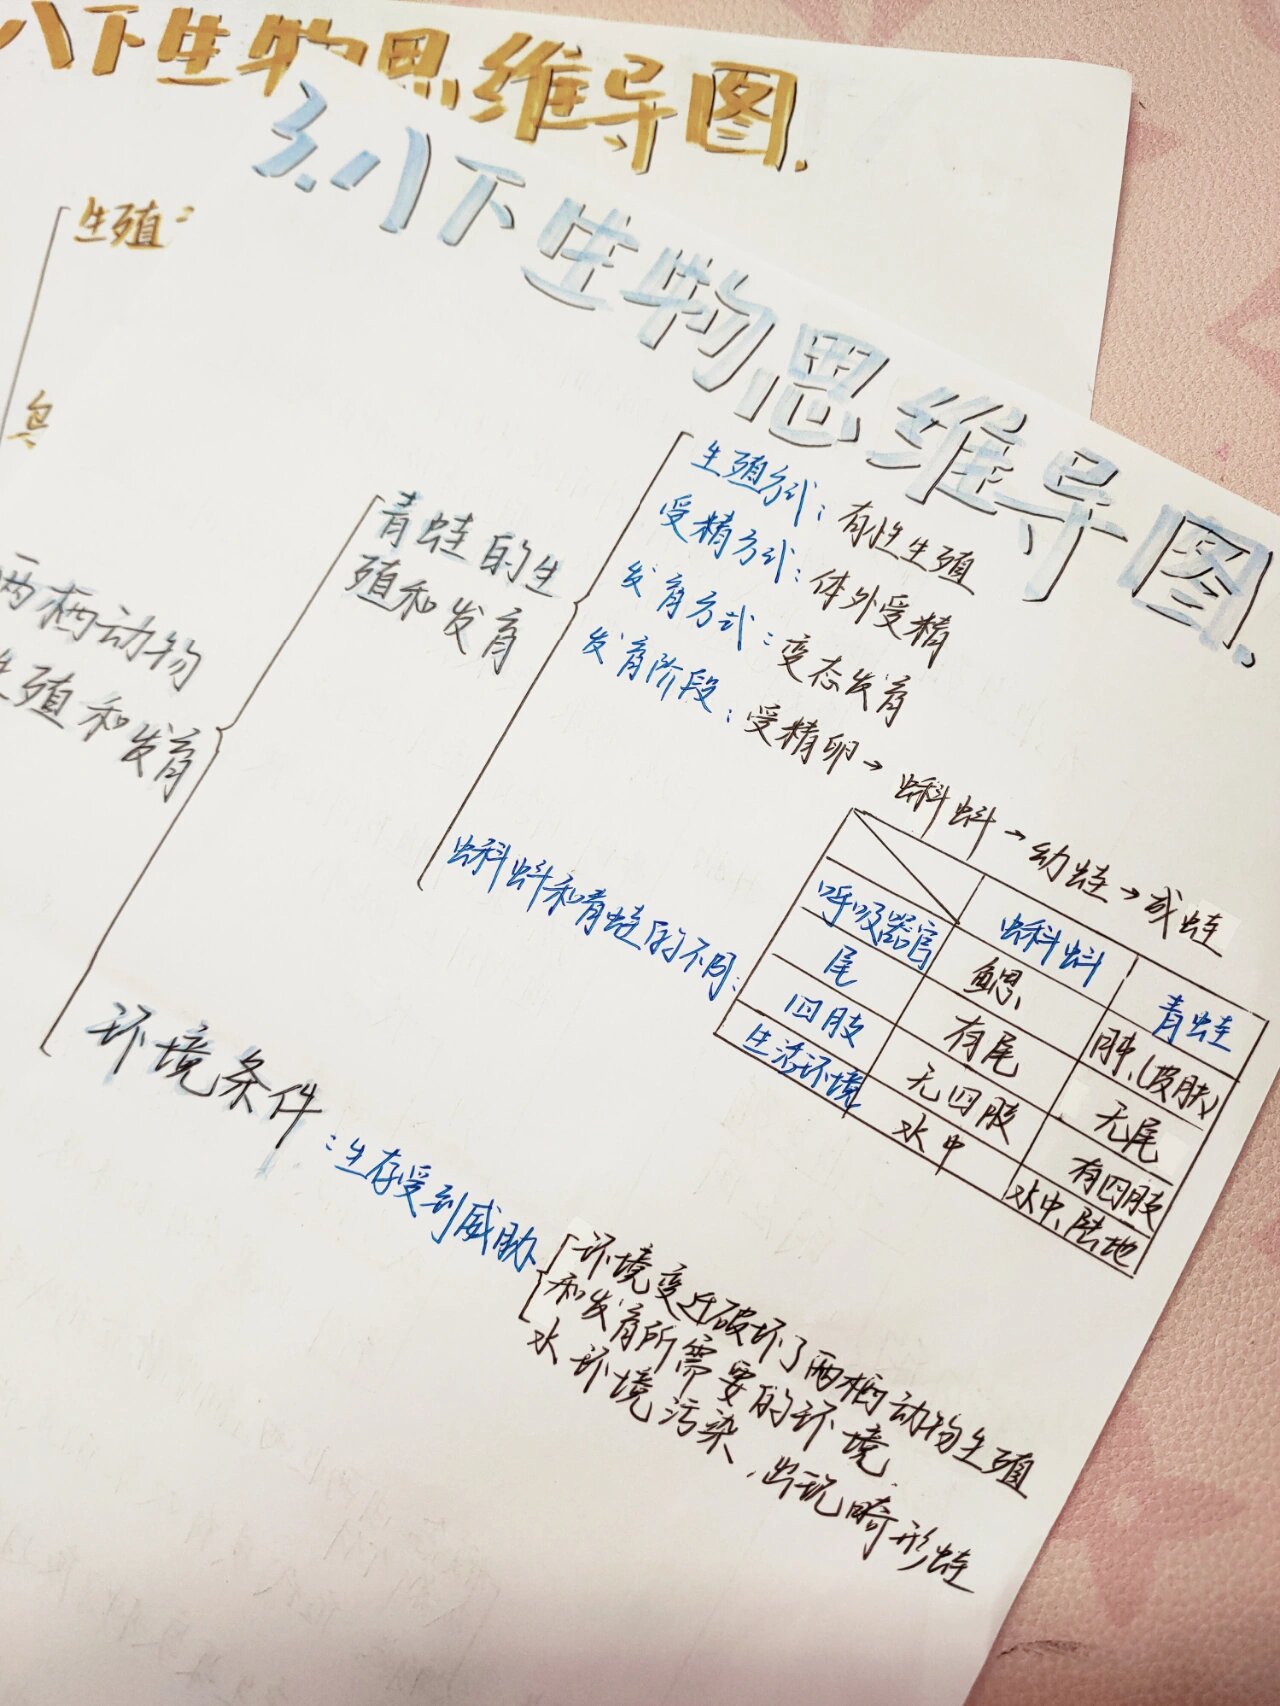 八下生物思维导图.
生殖:
3.八下生物思维导图.
两栖动物
生殖和发育
青蛙的生
殖和发育
生殖方式:有性生殖
受精方式:体外受精
发育方式:变态发育
发育阶段:受精卵→蝌蚪→幼蛙→成蛙
蝌蚪和青蛙的不同:
蝌蚪 青蛙
呼吸器官 鳃 肺(皮肤)
尾 有尾 无尾
四肢 无四肢 有四肢
生活环境 水中 水中、陆地
环境条件:生存受到威胁
环境变迁破坏了两栖动物生殖
和发育所需要的环境.
水环境污染,出现畸形蛙